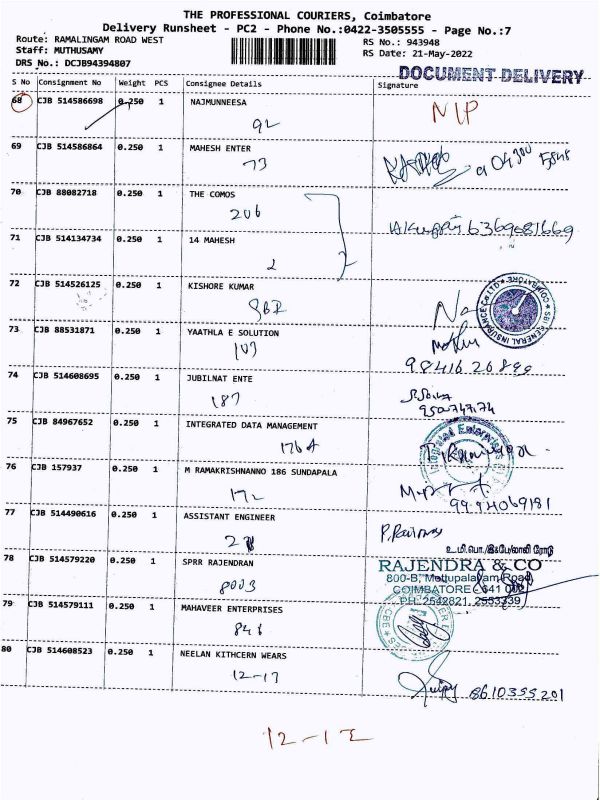 THE PROFESSIONAL COURIERS, Coimbatore
Delivery Runsheet - PC2 - Phone No.:0422-3505555 - Page No.:7
Route: RAMALINGAM ROAD WEST
Staff: MUTHUSAMY
DRS No.: DCJB94394807
RS No.: 943948
RS Date: 21-May-2022
DOCUMENT DELIVERY
S No Consignment No Weight PCS Consignee Details Signature
68 CJB 514586698 0.250 1 NAJMUNNEESA NIP
92
69 CJB 514586864 0.250 1 MAHESH ENTER
73
70 CJB 88082718 0.250 1 THE COMOS
206
6369681669
71 CJB 514134734 0.250 1 14 MAHESH
2
72 CJB 514526125 0.250 1 KISHORE KUMAR
SBI
SBI GENERAL INSURANCE Co LTD COIMBATORE
73 CJB 88531871 0.250 1 YAATHLA E SOLUTION
103
98416 20899
74 CJB 514608695 0.250 1 JUBILNAT ENTE
187
75 CJB 84967652 0.250 1 INTEGRATED DATA MANAGEMENT
176A
76 CJB 157937 0.250 1 M RAMAKRISHNANNO 186 SUNDAPALA
172
9994069181
77 CJB 514490616 0.250 1 ASSISTANT ENGINEER
78 CJB 514579220 0.250 1 SPRR RAJENDRAN
8003
RAJENDRA & CO
800-B, Mettupalayam Road
COIMBATORE - 641 002
PH: 2542821, 2553339
79 CJB 514579111 0.250 1 MAHAVEER ENTERPRISES
80 CJB 514608523 0.250 1 NEELAN KITHCERN WEARS
12-17
8610355201
12-12